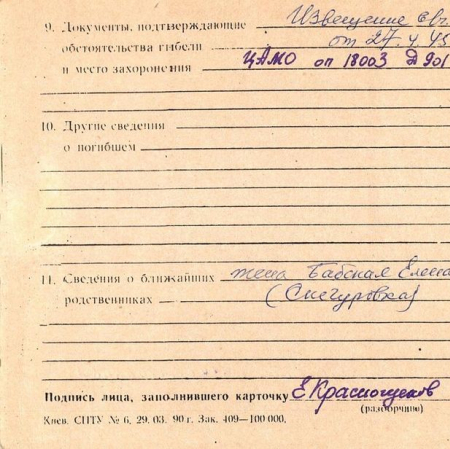 9. Документы, подтверждающие Извещение в/ч
обстоятельства гибели от 27.4.45
и место захоронения ЦАМО оп 18003 д 901
10. Другие сведения
о погибшем
11. Сведения о ближайших жена Бабская Елена
родственниках (Снегуровка)
Подпись лица, заполнившего карточку Е Красногуков
(разборчиво)
Киев. СПТУ № 6, 29. 03. 90 г. Зак. 409—100 000.